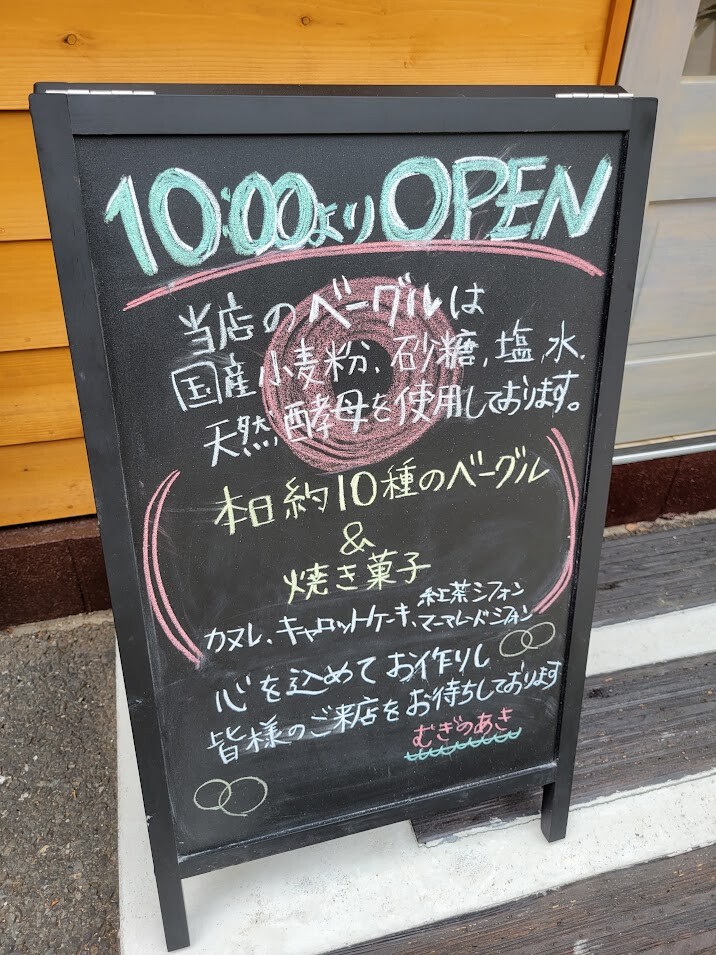 10:00より OPEN
当店のベーグルは
国産小麦粉、砂糖、塩、水、
天然酵母を使用しております。
本日約10種のベーグル
&
焼き菓子
カヌレ、キャロットケーキ、紅茶シフォン
マーマレードシフォン
心を込めてお作りし
皆様のご来店をお待ちしております
むぎのあき